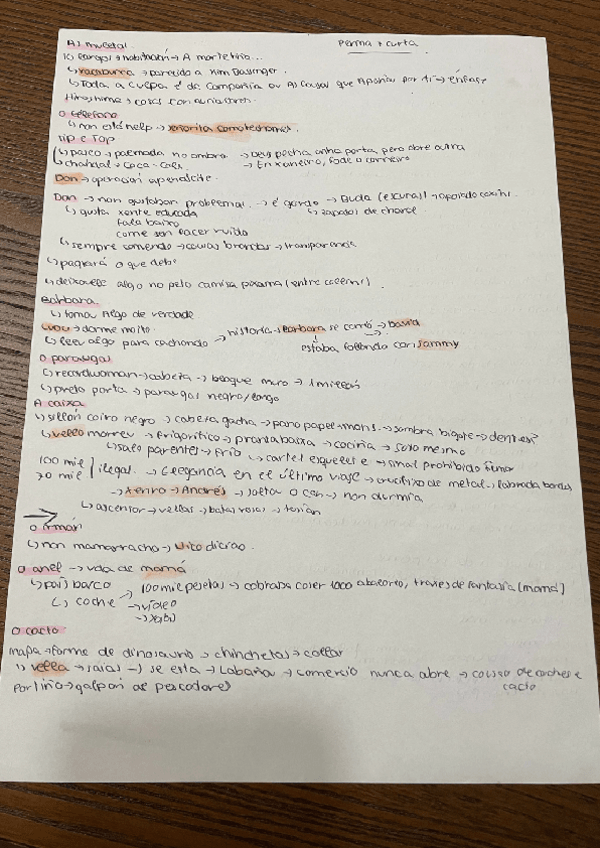 As muletas
Perma + curta
K) europa → habitación → A marteriña...
↳ rockburra → parecido a Kim Basinger.
↳ toda a culpa é da compañía ou As cousas que aparias por di → énfase
Hiroshima → cores con
O teléfono
↳ non está help → señorita comotechames.
Tip e Top
↳ pasco → palmada no ombro → Deus pecha unha porta, pero abre outra
↳ chandal + coca-cola → Enxaneiro, fode o carneiro
Don → operación apendicite.
Don → non gustaban problemas. → é gordo → Buda (escura) → apoiado coxins
↳ gusta xente educada ↳ zapatos de charol
fala baixo
come sen facer ruído
↳ sempre comendo → cousas brancas → transparencia
↳ pagará o que debe
↳ deixoulle algo no pelo camisa pixama (entre calcerns)
Bárbara
↳ toma algo de verdade
Lvov → dorme moito.
↳ leer algo para cachondo → historia → Bárbara se cambi → David
estaba follando con Sammy
O paraugas
↳ recordwoman → cabeza → bloque muro → 1 millón
↳ preto porta → paraugas negro/longo
A caixa
↳ sillón coiro negro → cabeza gacha → pano papel + mans → sombra bigote → dentes?
↳ vello morreu → frigorífico → planta baixa → cociña → soxo mesmo
↳ sala parentes → frío ↳ cartel esquelete → sinal prohibido fumar
100 mil / ilegal. → Elegancia en el último viaje → crucifixo de metal → labrada bordes
70 mil
→ xenro → Andrés → solta o can → non durmía
↳ ascensor → vellas → batas rosas → terían
→
O irmán
↳ non mamarracho → Vito dicíao.
O anel → vda de mamá
↳ país barco → 100 mil pesetas → cobraba coser 1000 abalorios, traxes de fantasía (mamá)
↳ coche → vídeo
→ xabi
O cacto
mapa → forme de dinosaurio → chinchetas → collar
↳ vella → saias → se esta → Labañou → comercio nunca abre → cousas de coches e cacto
Portiño → galpón de pescadores